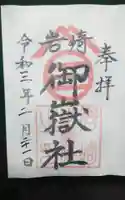 奉拝
岩崎
御嶽社
令和三年二月二十一日